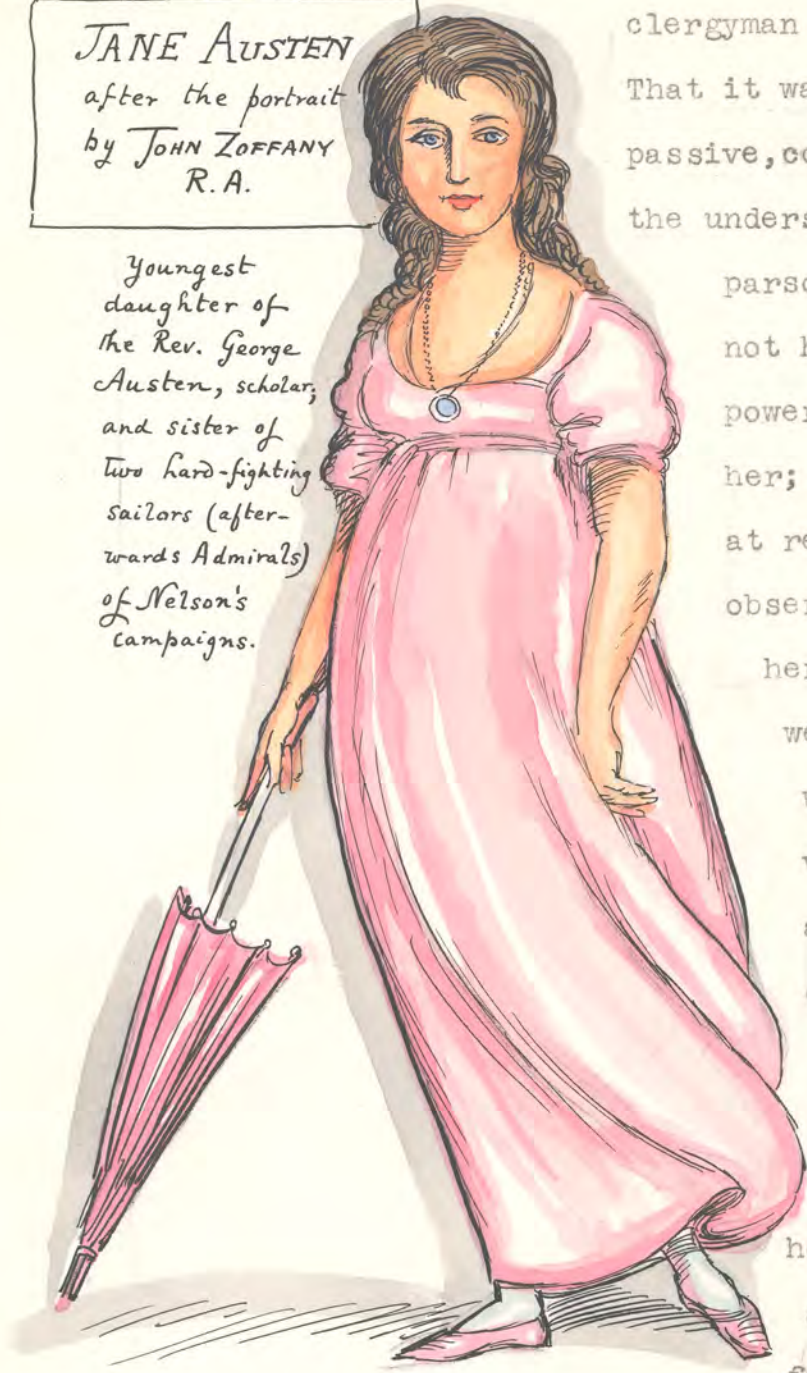 JANE AUSTEN
after the portrait
by JOHN ZOFFANY
R.A.
Youngest
daughter of
the Rev. George
Austen, scholar;
and sister of
two hard-fighting
sailors (after-
wards Admirals)
of Nelson's
campaigns.
clergyman
That it wa
passive,co
the unders
parso
not h
power
her;
at re
obser
her
we
h